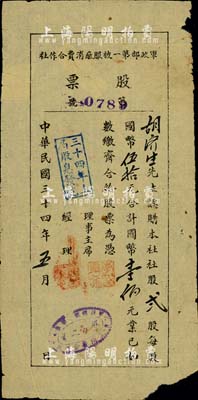 上海陽明拍賣
軍政部第一被服廠消費合作社
股票
號0789
胡濟生先生認購本社社股弍股每股
國幣伍拾元合計國幣壹佰元業已如
數繳齊合給股票為憑
理事主席
經理
中華民國三十四年五月 日
三十四年
上海陽明拍賣